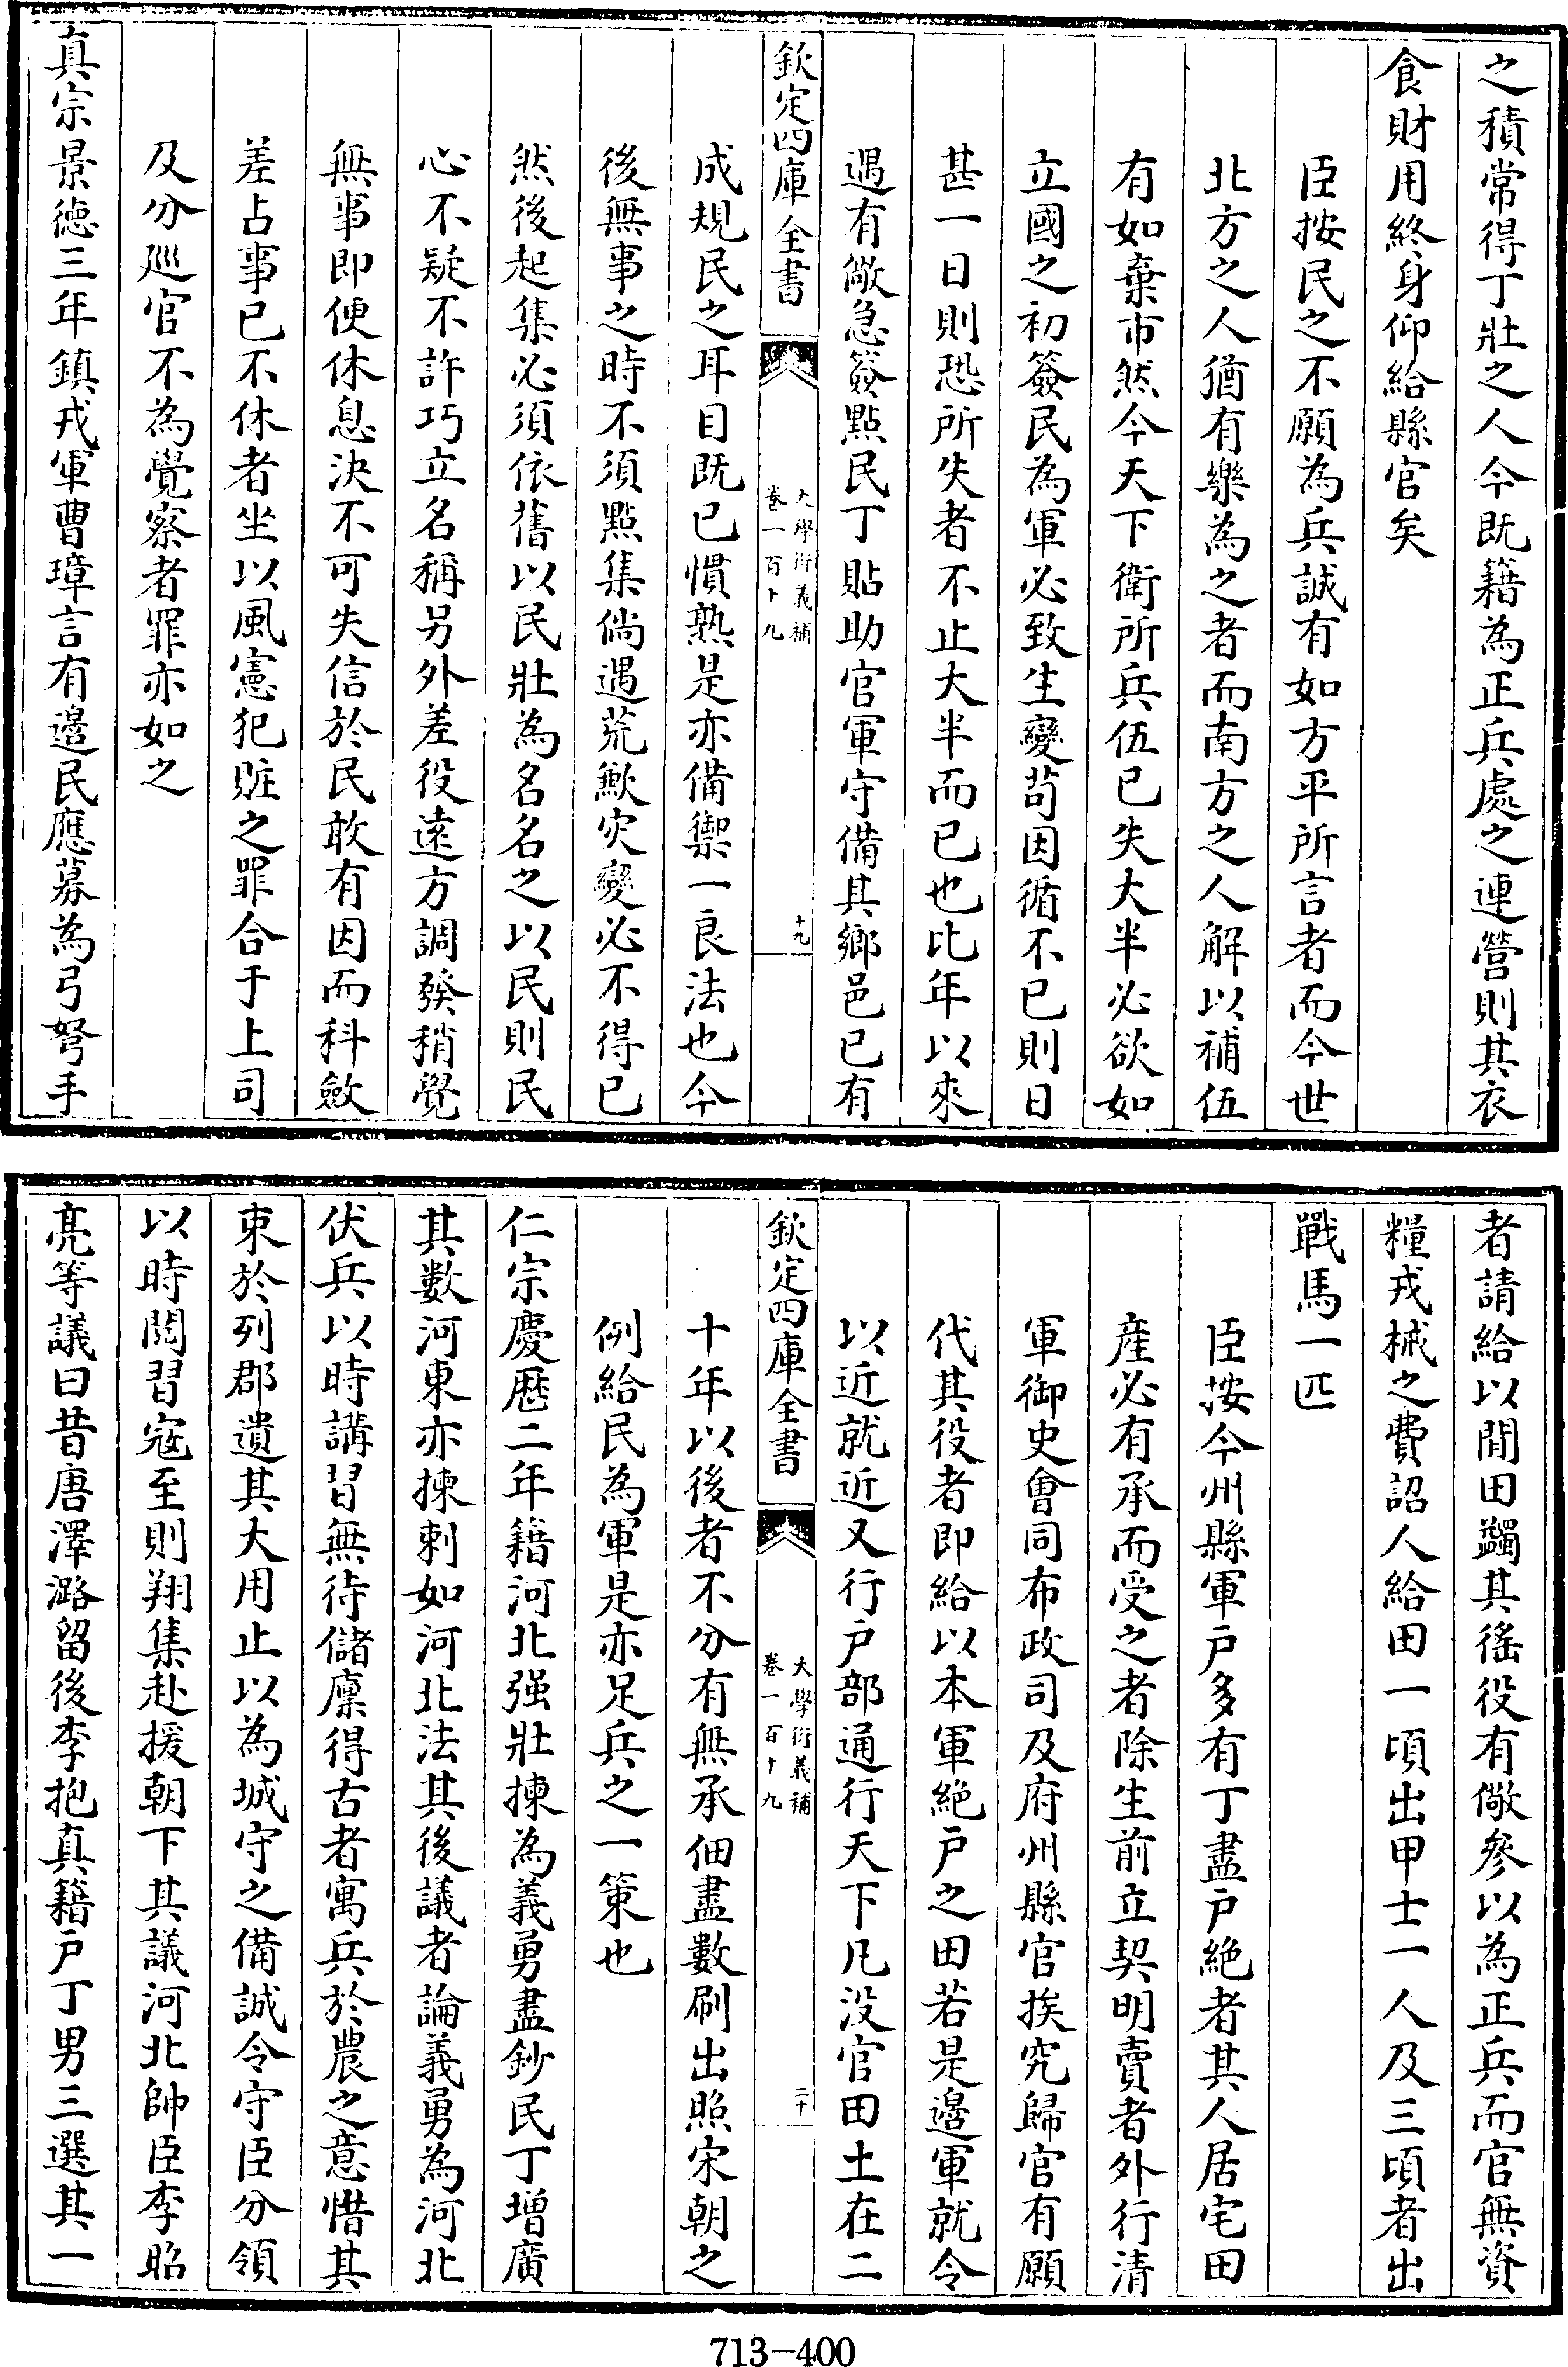 之積常得丁壯之人今既籍為正兵處之連營則其衣
食財用終身仰給縣官矣
臣按民之不願為兵誠有如方平所言者而今世
北方之人猶有樂為之者而南方之人解以補伍
有如棄市然今天下衛所兵伍已失大半必欲如
立國之初簽民為軍必致生變苟因循不已則日
甚一日則恐所失者不止大半而已也比年以來
遇有儆急簽點民丁貼助官軍守備其鄉邑已有
欽定四庫全書
大學衍義補
卷一百十九
十九
成規民之耳目既已慣熟是亦備禦一良法也今
後無事之時不須點集倘遇荒歉災變必不得已
然後起集必須依舊以民壯為名名之以民則民
心不疑不許巧立名稱另外差役遠方調發稍覺
無事即便休息決不可失信於民敢有因而科斂
差占事已不休者坐以風憲犯賍之罪合于上司
及分廵官不為覺察者罪亦如之
真宗景德三年鎮戎軍曹瑋言有邉民應募為弓弩手
者請給以閒田蠲其徭役有儆參以為正兵而官無資
糧戎械之費詔人給田一頃出甲士一人及三頃者出
戰馬一匹
臣按今州縣軍户多有丁盡户絶者其人居宅田
産必有承而受之者除生前立契明賣者外行清
軍御史會同布政司及府州縣官挨究歸官有願
代其役者即給以本軍絶户之田若是邉軍就令
以近就近又行户部通行天下凡没官田土在二
欽定四庫全書
大學衍義補
卷一百十九
二十
十年以後者不分有無承佃盡數刷出照宋朝之
例給民為軍是亦足兵之一策也
仁宗慶厯二年籍河北强壯揀為義勇盡鈔民丁增廣
其數河東亦揀刺如河北法其後議者論義勇為河北
伏兵以時講習無待儲廩得古者寓兵於農之意惜其
束於列郡遺其大用止以為城守之備誠令守臣分領
以時閲習寇至則翔集赴援朝下其議河北帥臣李昭
亮等議曰昔唐澤潞留後李抱真籍户丁男三選其一
713-400